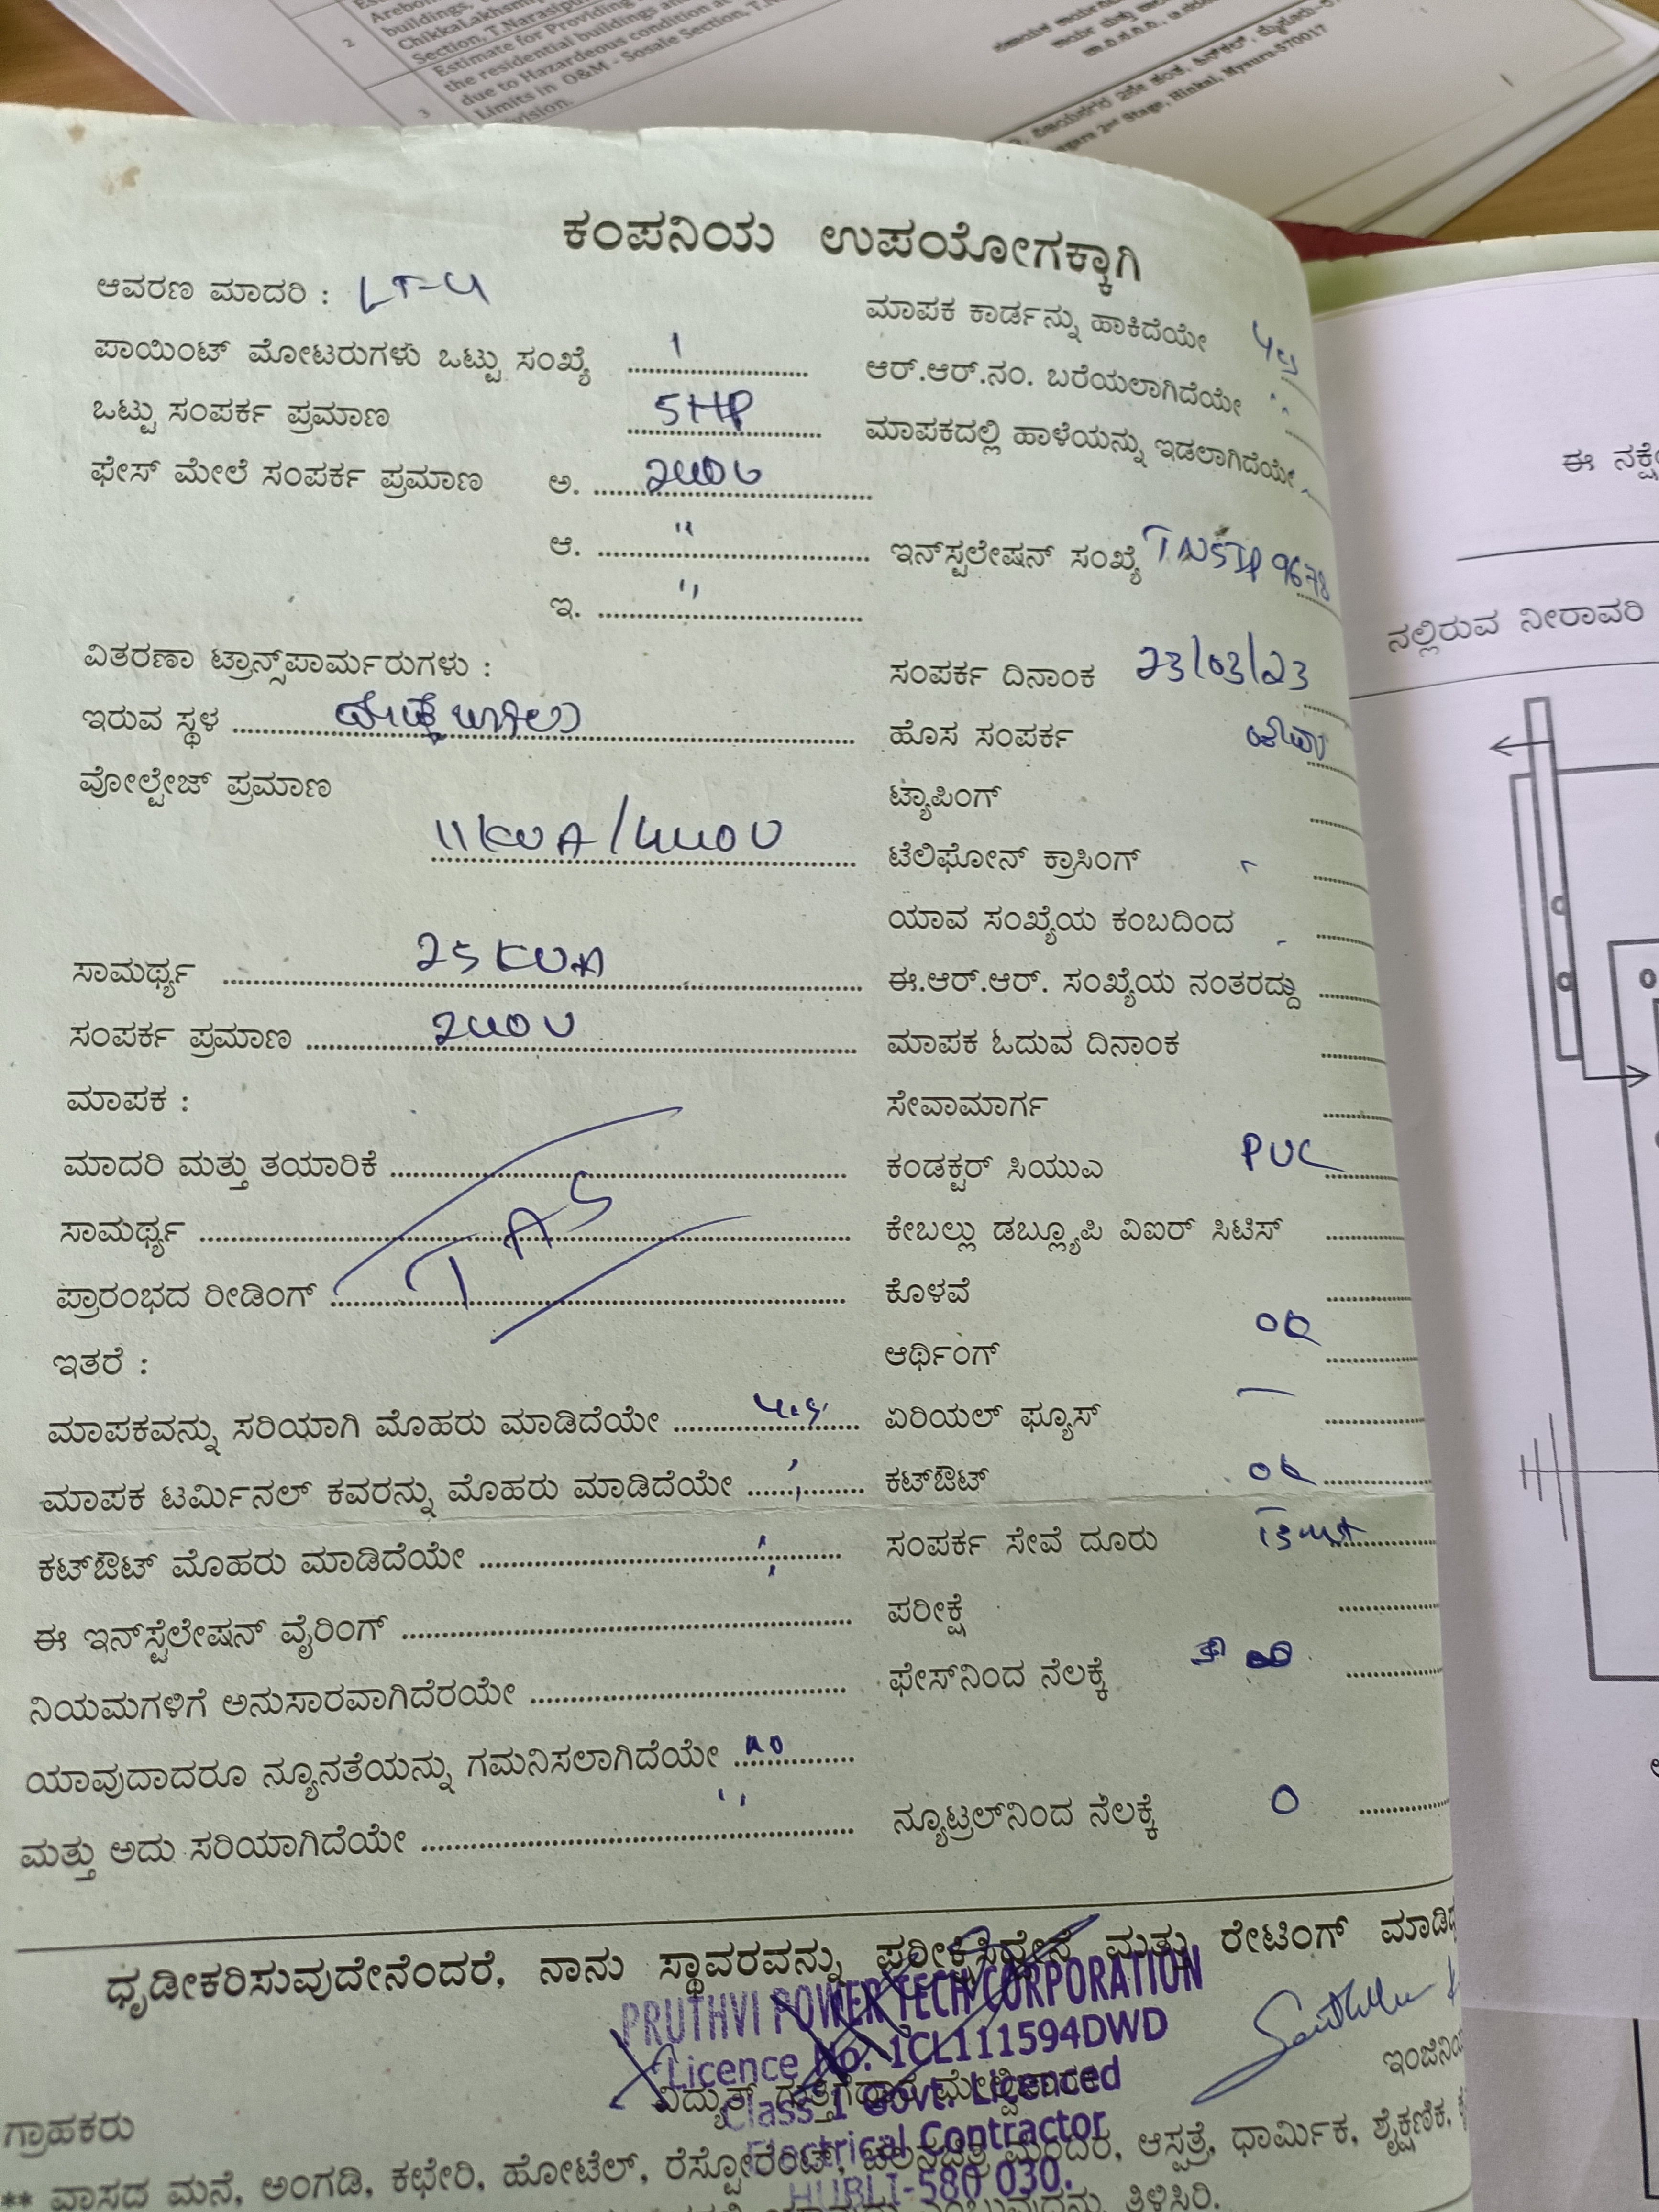 2
buildings,
Section, T.Narasipu
Estimate for Providing
the residential buildings
due to Hazardeous condition at
3
Limits in O&M - Sosale Section, T.
vision.
2nd Stage, Hinkal, Mysuru-570017
ಕಂಪನಿಯ ಉಪಯೋಗಕ್ಕಾಗಿ
ಆವರಣ ಮಾದರಿ : LT-4
ಮಾಪಕ ಕಾರ್ಡನ್ನು ಹಾಕಿದೆಯೇ
ಪಾಯಿಂಟ್ ಮೋಟರುಗಳು ಒಟ್ಟು ಸಂಖ್ಯೆ 1
ಆರ್.ಆರ್.ನಂ. ಬರೆಯಲಾಗಿದೆಯೇ "
ಒಟ್ಟು ಸಂಪರ್ಕ ಪ್ರಮಾಣ 5HP
ಮಾಪಕದಲ್ಲಿ ಹಾಳೆಯನ್ನು ಇಡಲಾಗಿದೆಯೇ
ಫೇಸ್ ಮೇಲೆ ಸಂಪರ್ಕ ಪ್ರಮಾಣ ಅ. 240V
ಆ. "
ಇನ್‌ಸ್ಟಲೇಷನ್ ಸಂಖ್ಯೆ TNSIP 9678
ಇ. "
ವಿತರಣಾ ಟ್ರಾನ್ಸ್‌ಪಾರ್ಮರುಗಳು :
ಸಂಪರ್ಕ ದಿನಾಂಕ 23/03/23
ಇರುವ ಸ್ಥಳ
ಹೊಸ ಸಂಪರ್ಕ
ವೋಲ್ಟೇಜ್ ಪ್ರಮಾಣ
ಟ್ಯಾಪಿಂಗ್
11KVA/440V
ಟೆಲಿಫೋನ್ ಕ್ರಾಸಿಂಗ್
ಯಾವ ಸಂಖ್ಯೆಯ ಕಂಬದಿಂದ
ಸಾಮರ್ಥ್ಯ 25KVA
ಈ.ಆರ್.ಆರ್. ಸಂಖ್ಯೆಯ ನಂತರದ್ದು
ಸಂಪರ್ಕ ಪ್ರಮಾಣ 240V
ಮಾಪಕ ಓದುವ ದಿನಾಂಕ
ಮಾಪಕ :
ಸೇವಾಮಾರ್ಗ
ಮಾದರಿ ಮತ್ತು ತಯಾರಿಕೆ
ಕಂಡಕ್ಟರ್ ಸಿಯುಎ PVC
ಸಾಮರ್ಥ್ಯ
ಕೇಬಲ್ಲು ಡಬ್ಲ್ಯೂಪಿ ವಿಐರ್ ಸಿಟಿಸ್
ಪ್ರಾರಂಭದ ರೀಡಿಂಗ್
ಕೊಳವೆ
ಇತರೆ :
ಆರ್ಥಿಂಗ್ ok
ಮಾಪಕವನ್ನು ಸರಿಯಾಗಿ ಮೊಹರು ಮಾಡಿದೆಯೇ
ಏರಿಯಲ್ ಫ್ಯೂಸ್ —
ಮಾಪಕ ಟರ್ಮಿನಲ್ ಕವರನ್ನು ಮೊಹರು ಮಾಡಿದೆಯೇ
ಕಟ್‌ಔಟ್ ok
ಕಟ್‌ಔಟ್ ಮೊಹರು ಮಾಡಿದೆಯೇ
ಸಂಪರ್ಕ ಸೇವೆ ದೂರು
ಈ ಇನ್‌ಸ್ಟೆಲೇಷನ್ ವೈರಿಂಗ್
ಪರೀಕ್ಷೆ
ನಿಯಮಗಳಿಗೆ ಅನುಸಾರವಾಗಿದೆರಯೇ
ಫೇಸ್‌ನಿಂದ ನೆಲಕ್ಕೆ
ಯಾವುದಾದರೂ ನ್ಯೂನತೆಯನ್ನು ಗಮನಿಸಲಾಗಿದೆಯೇ no
ಮತ್ತು ಅದು ಸರಿಯಾಗಿದೆಯೇ "
ನ್ಯೂಟ್ರಲ್‌ನಿಂದ ನೆಲಕ್ಕೆ 0
ಧೃಡೀಕರಿಸುವುದೇನೆಂದರೆ, ನಾನು ಸ್ಥಾವರವನ್ನು ಪರೀಕ್ಷಿಸಿದ್ದೇನೆ ಮತ್ತು ರೇಟಿಂಗ್
PRUTHVI POWER TECH CORPORATION
Licence No. 1CL111594DWD
Class 1 Govt. Licenced
Electrical Contractor
HUBLI-580 030.
ಗ್ರಾಹಕರು
** ವಾಸದ ಮನೆ, ಅಂಗಡಿ, ಕಛೇರಿ, ಹೋಟೆಲ್, ರೆಸ್ಟೋರೆಂಟ್, ಚಲನಚಿತ್ರ ಮಂದಿರ, ಆಸ್ಪತ್ರೆ, ಧಾರ್ಮಿಕ, ಶೈಕ್ಷಣಿಕ,
ತಿಳಿಸಿರಿ.
ನಲ್ಲಿರುವ ನೀರಾವರಿ